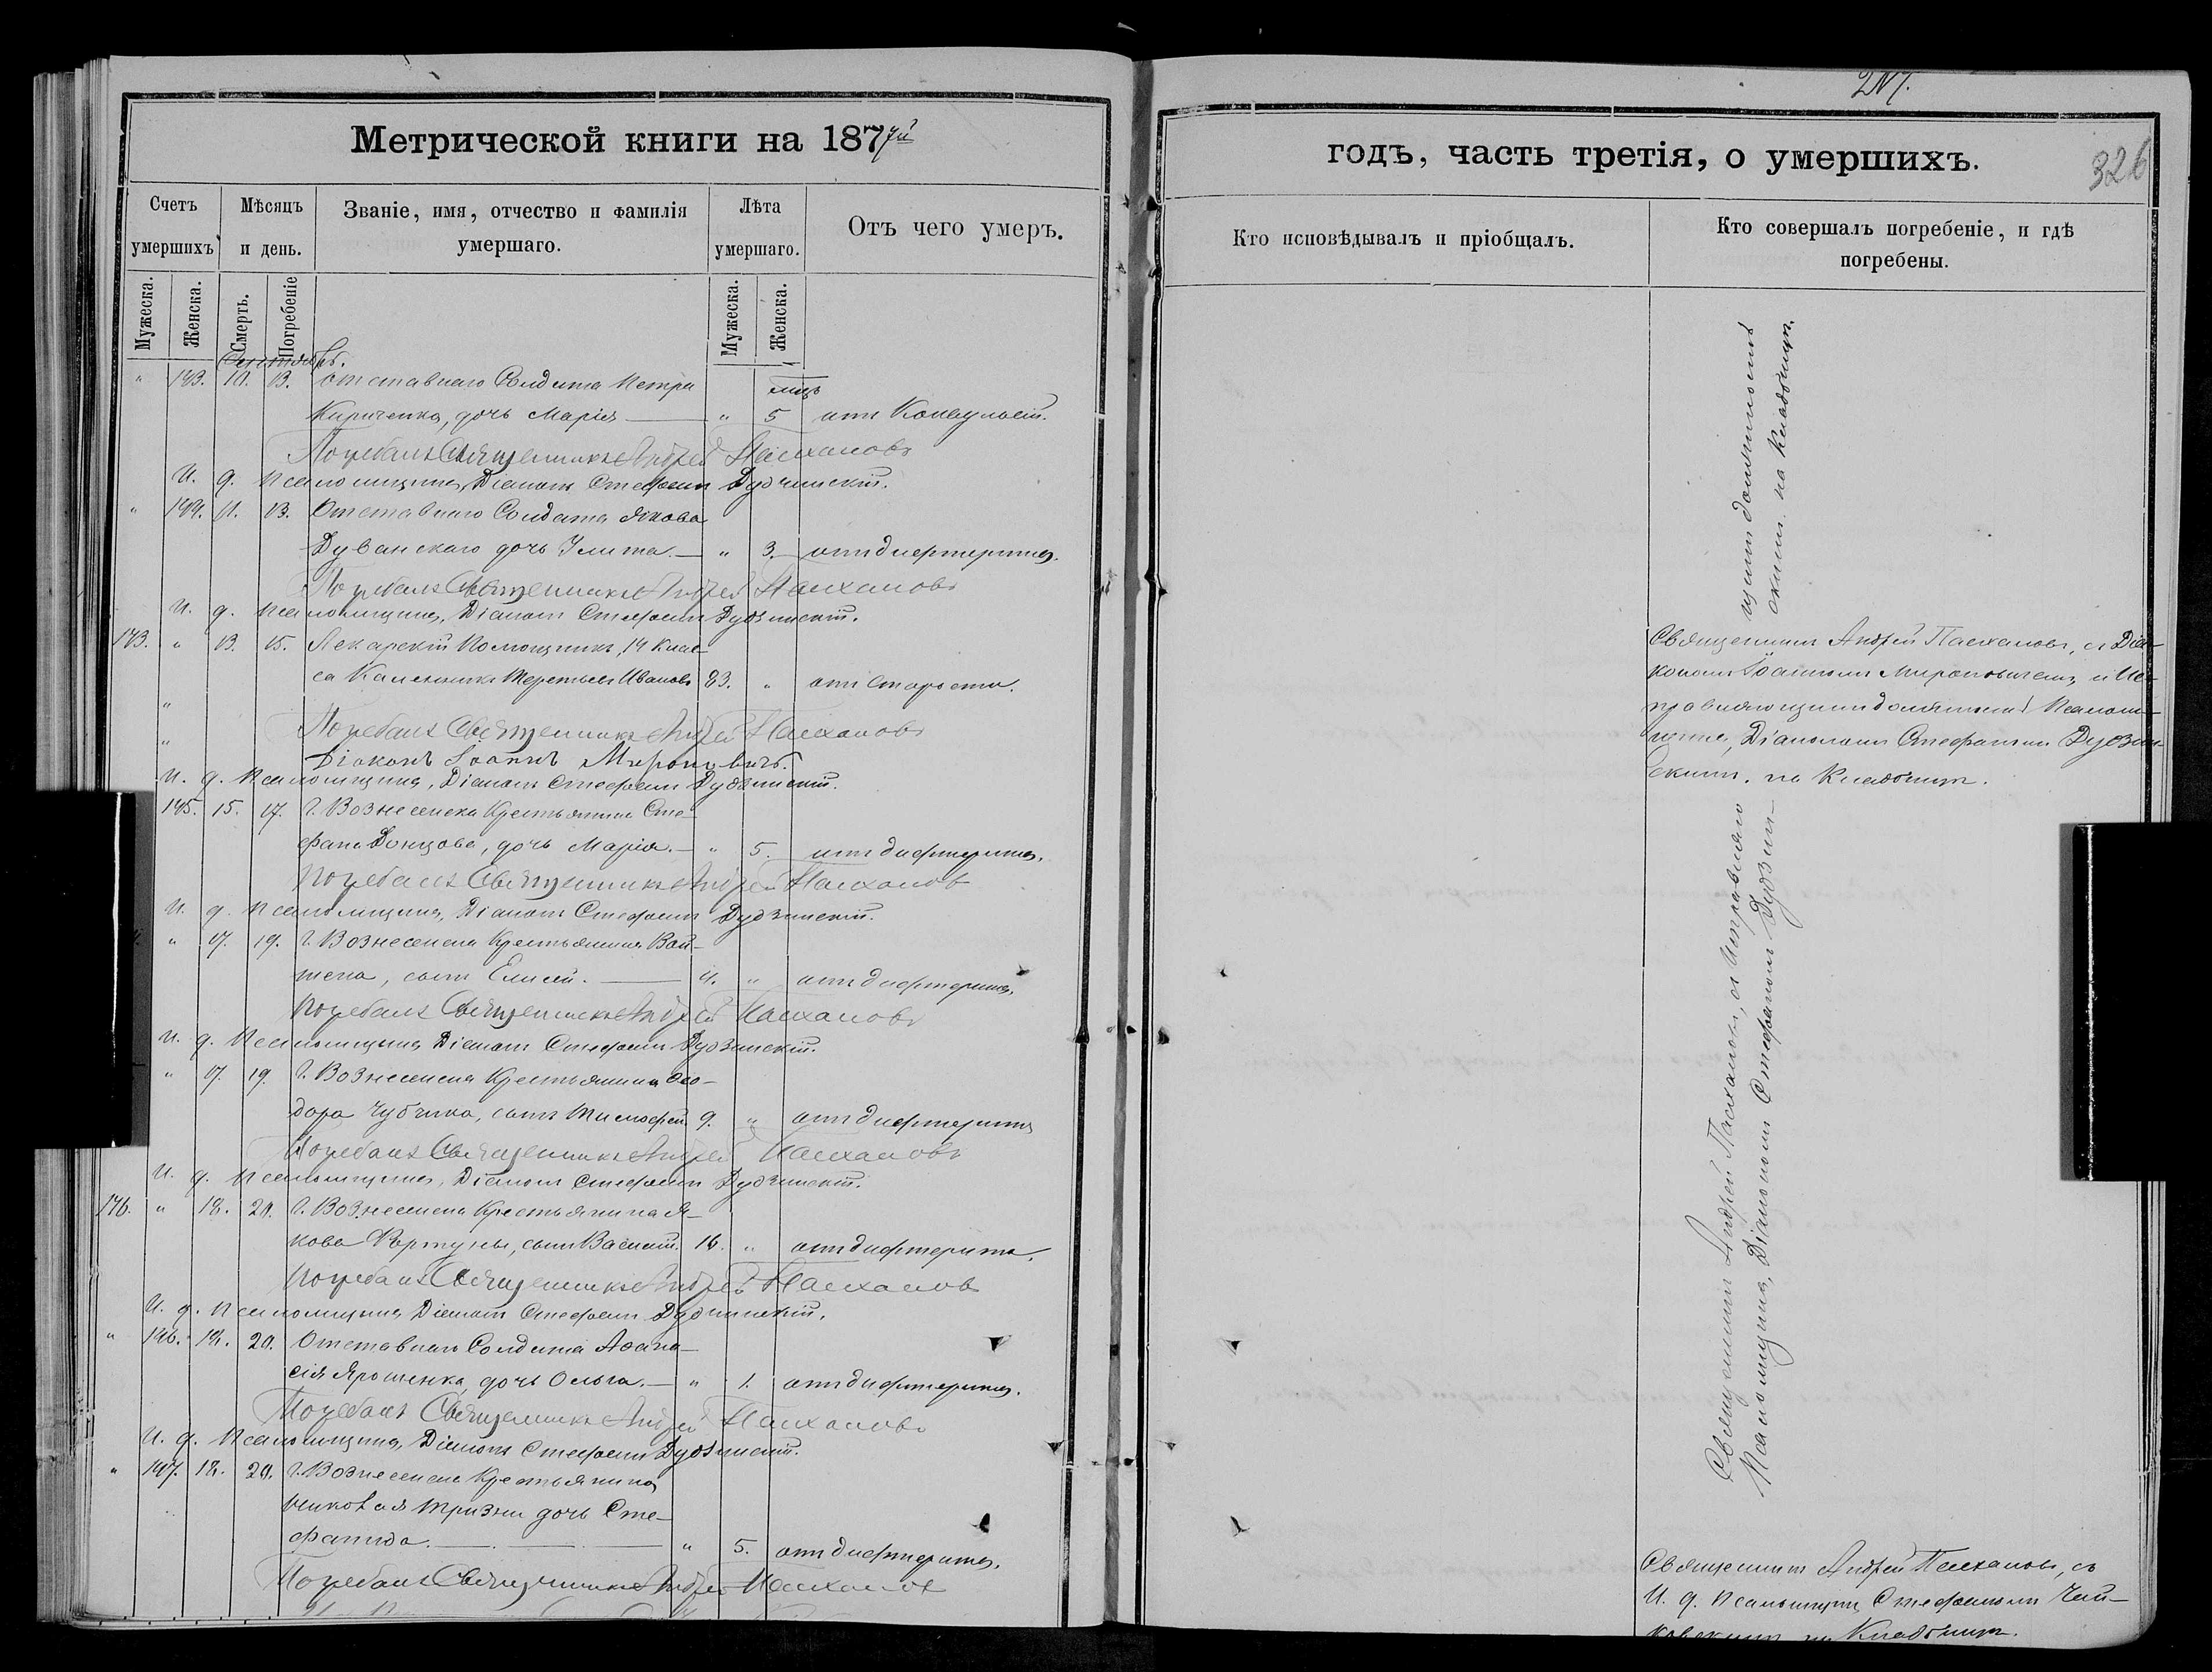 Метрической книги на 1877й
Счетъ умершихъ
Мѣсяцъ и день.
Званіе, имя, отчество и фамилія умершаго.
Лѣта умершаго.
Отъ чего умеръ.
Мужеска.
Женска.
Смерть.
Погребеніе
Мужеска.
Женска.
Сентябрь.
" 143. 10. 13. Отставнаго Солдата Петра мцъ
Кириченка, дочь Марія " 5 отъ Конвульсій.
Погребалъ Священникъ Андрей Пасхаловъ
И. д. Псаломщика, Діаконъ Стефанъ Дудзинскій.
" 144. 11. 13. Отставнаго Солдата Якова
Дуванскаго дочь Улита. " 3. отъ дифтерита.
Погребалъ Священникъ Андрей Пасхаловъ
И. д. Псаломщика, Діаконъ Стефанъ Дудзинскій.
143. " 13. 15. Лекарскій Помощникъ, 14 клас-
са Терентьевъ Ивановъ 83. " отъ Старости.
"
Погребалъ Священникъ Андрей Пасхаловъ
"
Діаконъ Іоаннъ Мироновичъ.
И. д. Псаломщика, Діаконъ Стефанъ Дудзинскій.
145. 15. 17. г. Вознесенска Крестьянина Сте-
фана Донцова, дочь Марія. " 5. отъ дифтерита.
Погребалъ Священникъ Андрей Пасхаловъ
И. д. Псаломщика, Діаконъ Стефанъ Дудзинскій.
" 17. 19. г. Вознесенска Крестьянина Вой-
тена, сынъ Елисей. 4. " отъ дифтерита.
Погребалъ Священникъ Андрей Пасхаловъ
И. д. Псаломщика Діаконъ Стефанъ Дудзинскій.
" 17. 19. г. Вознесенска Крестьянина Ѳео-
дора Чубчика, сынъ Тимофей 9. " отъ дифтерита
Погребалъ Священникъ Андрей Пасхаловъ
И. д. Псаломщика, Діаконъ Стефанъ Дудзинскій.
146. " 18. 20. г. Вознесенска Крестьянина Я-
кова Фортуны, сынъ Василій. 16. " отъ дифтерита.
Погребалъ Священникъ Андрей Пасхаловъ
И. д. Псаломщика Діаконъ Стефанъ Дудзинскій.
" 146. 18. 20. Отставнаго Солдата Аѳана-
сія Ярошенка, дочь Ольга. " 1. отъ дифтерита.
Погребалъ Священникъ Андрей Пасхаловъ
И. д. Псаломщика, Діаконъ Стефанъ Дудзинскій.
" 147. 18. 20. г. Вознесенска Крестьянина
Тризны дочь Сте-
фанида. " 5. отъ дифтерита.
Погребалъ Священникъ Андрей Пасхаловъ
217.
годъ, часть третія, о умершихъ.
326
Кто исповѣдывалъ и пріобщалъ.
Кто совершалъ погребеніе, и гдѣ погребены.
щимъ должность
скимъ. на Кладбищѣ.
Священникъ Андрей Пасхаловъ, съ Діа-
кономъ Іоанномъ Мироновичемъ, и Ис-
правляющимъ должность Псалом-
щика, Діакономъ Стефаномъ Дудзин-
скимъ. на Кладбищѣ.
Священникъ Андрей Пасхаловъ, съ Исправляю
Псаломщика, Діакономъ Стефаномъ Дудзин-
Священникъ Андрей Пасхаловъ, съ
И. д. Псаломщика Стефаномъ Чай-
ковскимъ на Кладбищѣ.